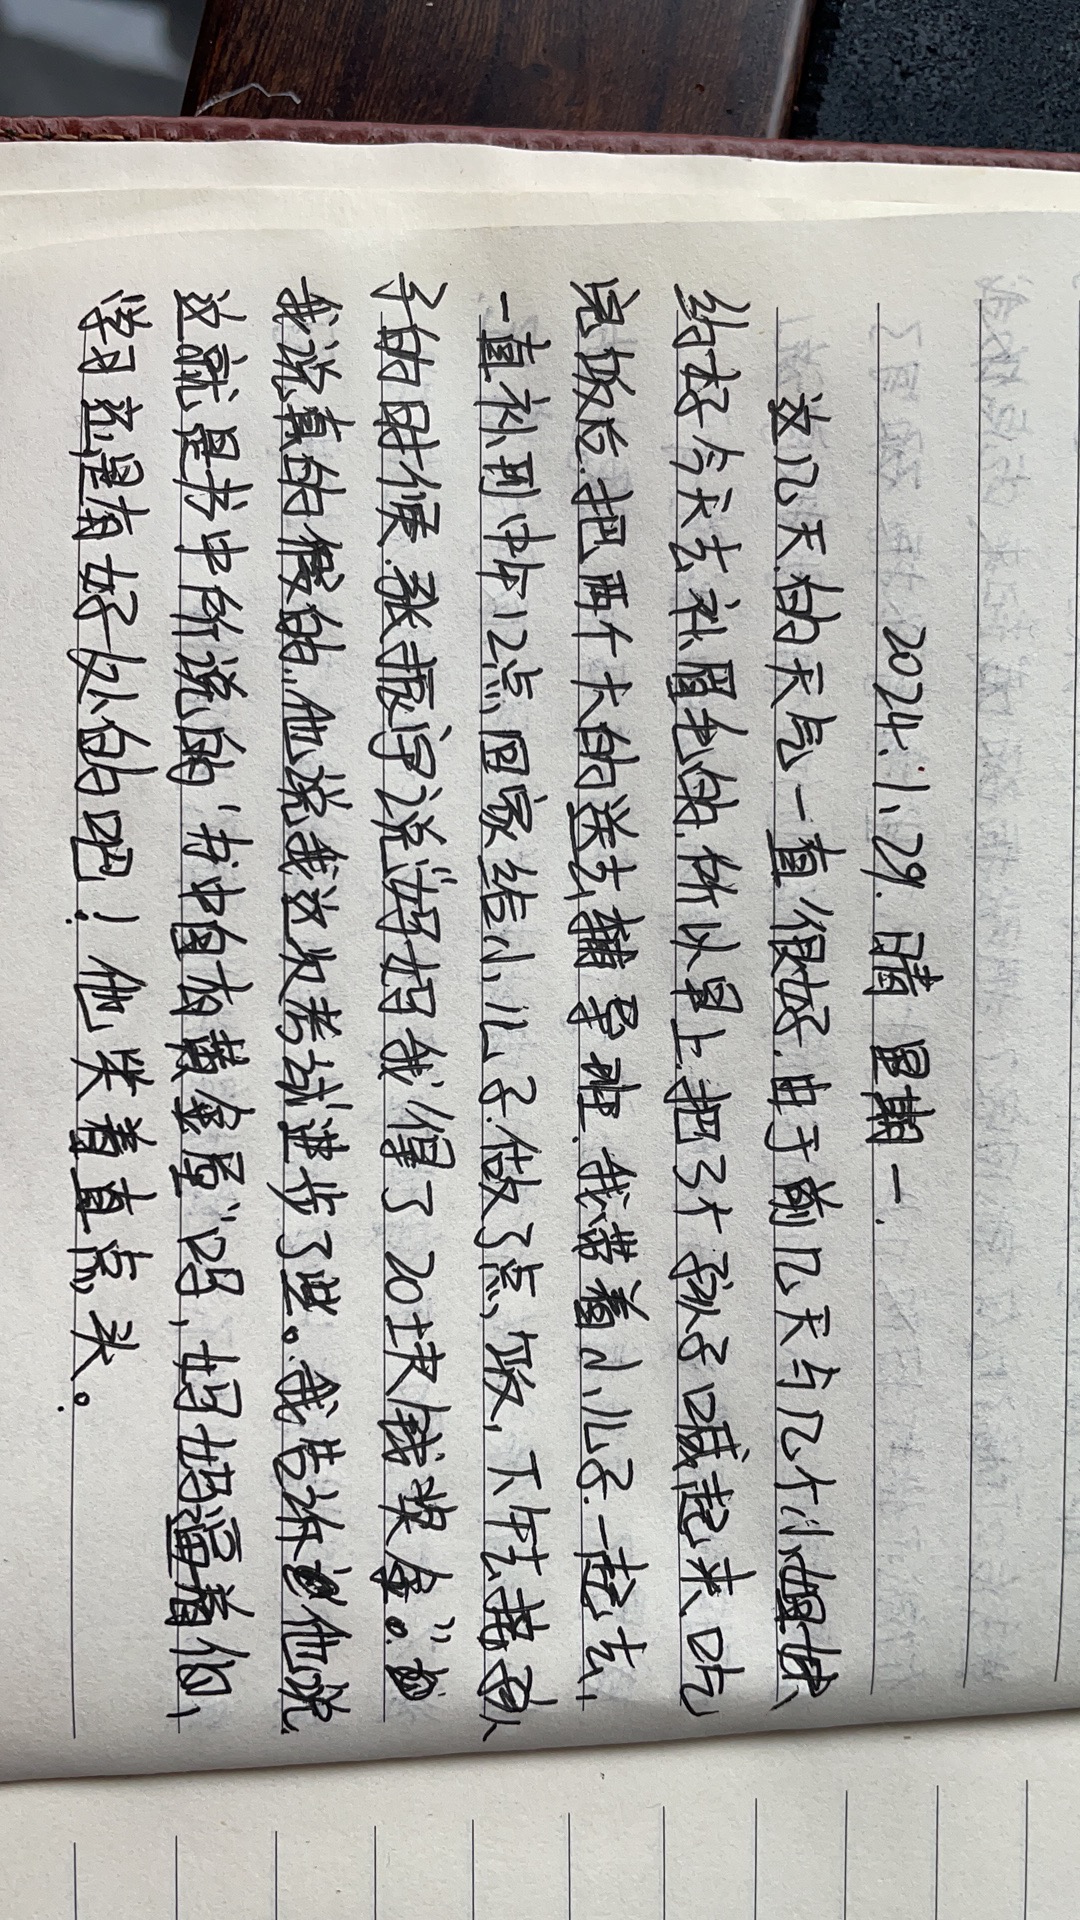 2024.1.29. 晴 星期一.
这几天的天气一直很好.由于前几天与几个小姐妹
约好今天去补眉毛的.所以早上把3个孩子喊起来吃
完饭后.把两个大的送去辅导班.我带着小儿子一起去,
一直补到中午12点,回家给小儿子做了点饭,下午去接孩
子的时候.张振宇说“妈妈我得了20块钱奖金。”
我说真的假的..他说我这次考试进步了些。我告诉他说
这就是书中所说的“书中自有黄金屋”吗,妈妈逼着你、
学习还是有好处的吧!他笑着直点头。